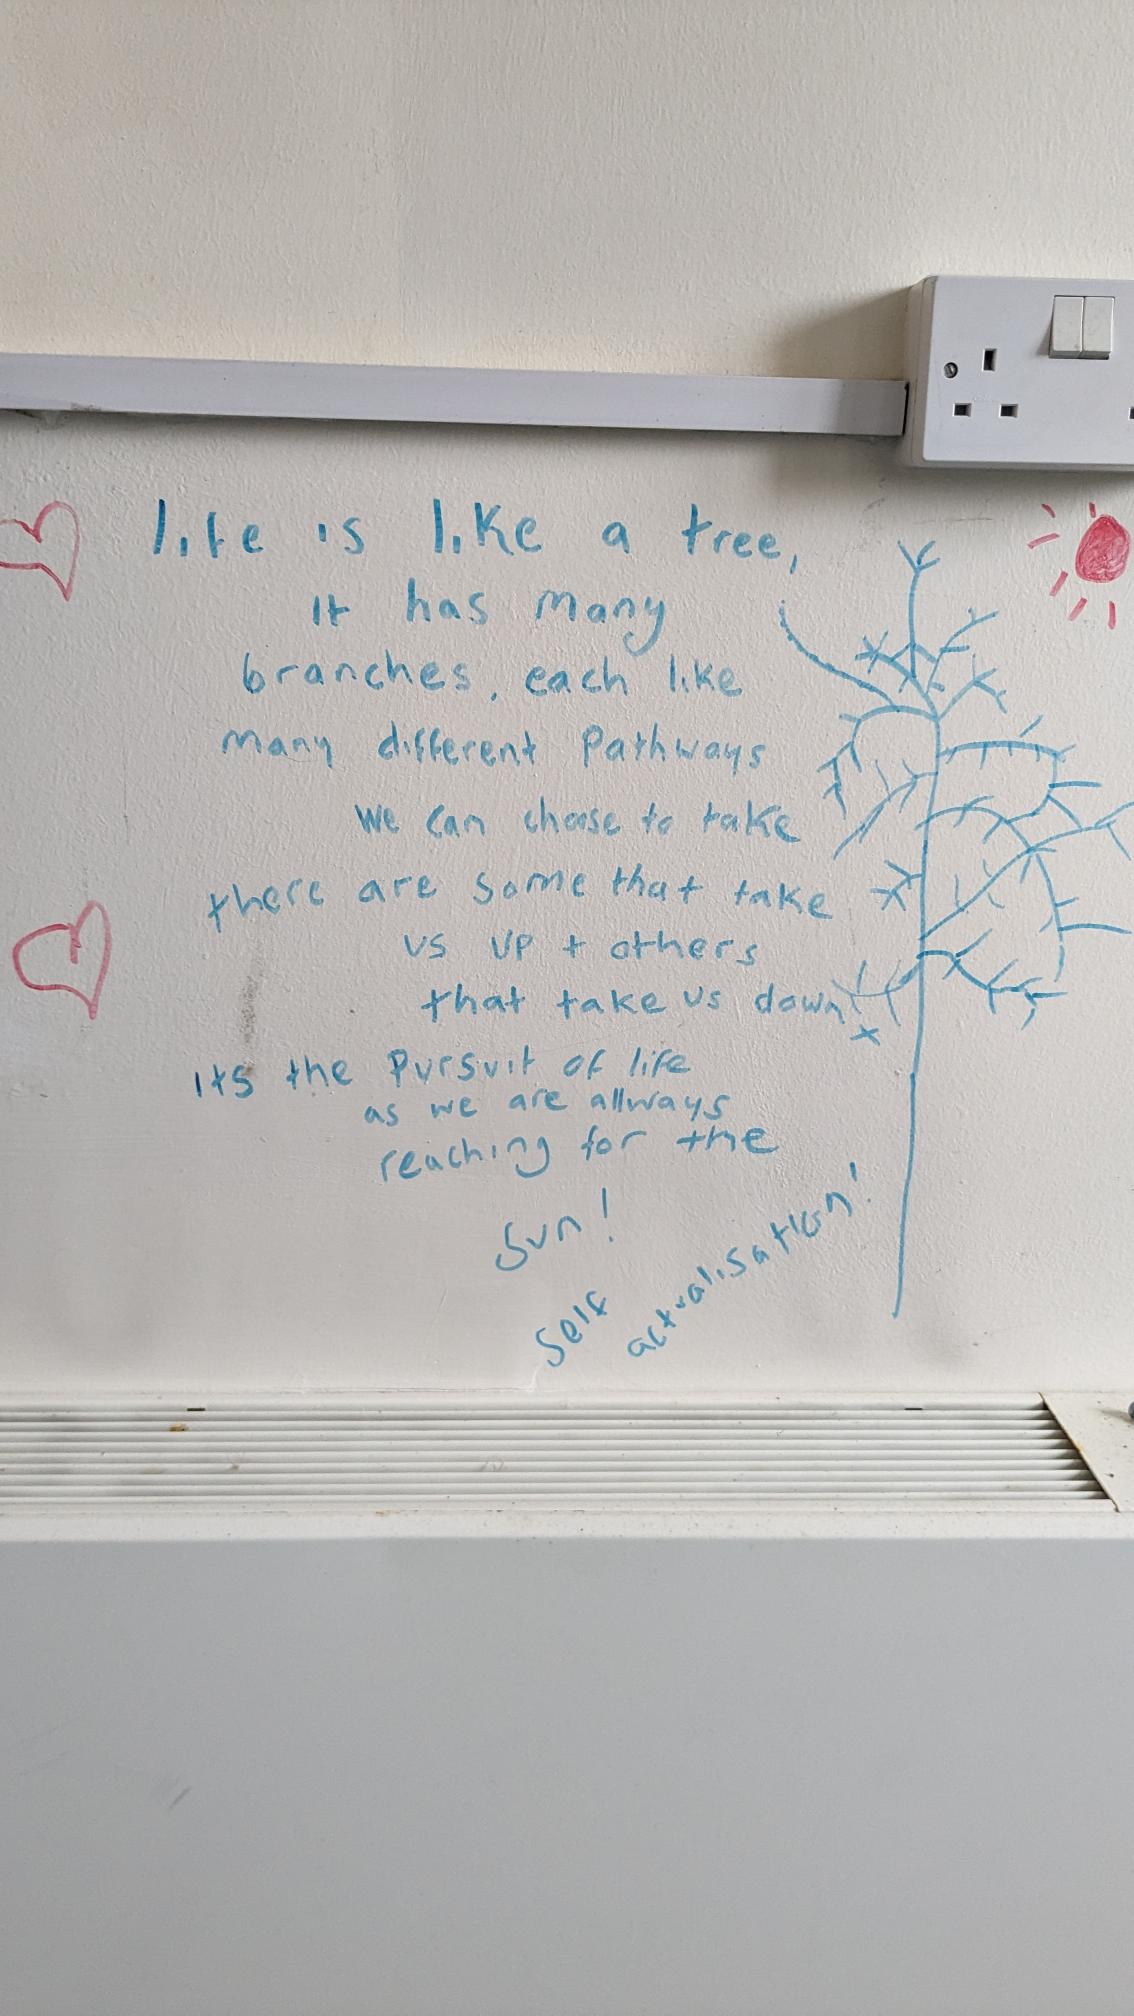 life is like a tree,
it has many
branches, each like
many different Pathways
we can chose to take
there are some that take
us up + others
that take us down
its the Pursuit of life
as we are allways
reaching for the
sun!
self
actualisation!